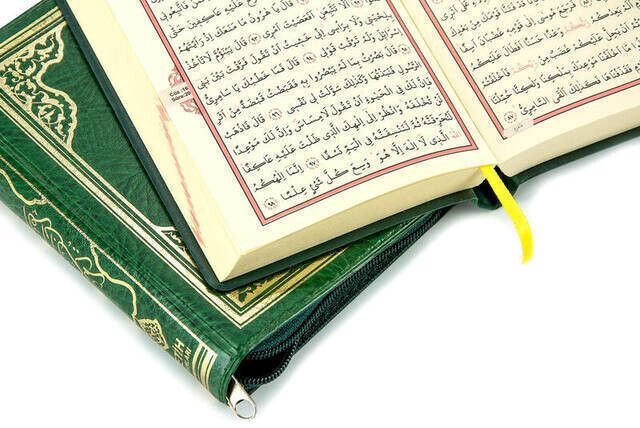 فَرَجَعَ مُوسٰى اِلٰى قَوْمِه۪ غَضْبَانَ
اَنْ يَحِلَّ عَلَيْكُمْ غَضَبٌ مِنْ
مَوْعِدَكَ بِمَلْكِنَا وَلٰكِنَّا
فَكَذٰلِكَ اَلْقَى السَّامِرِيُّ ﴿٨٧﴾
عَلَيْهِ عَاكِف۪ينَ حَتّٰى
قَالَ يَا هٰرُونُ مَا مَنَعَكَ اِذْ رَاَيْتَهُمْ
اَفَعَصَيْتَ اَمْر۪ي ﴿٩٣﴾ قَالَ يَبْنَؤُمَّ لَا تَأْخُذْ
بِلِحْيَت۪ي وَلَا بِرَأْس۪ي اِنّ۪ي خَش۪يتُ اَنْ تَقُولَ فَرَّقْتَ بَيْنَ بَن۪ي
اِسْرَٓائ۪يلَ وَلَمْ تَرْقُبْ قَوْل۪ي ﴿٩٤﴾ قَالَ فَمَا خَطْبُكَ يَا سَامِرِيُّ ﴿٩٥﴾
قَالَ بَصُرْتُ بِمَا لَمْ يَبْصُرُوا بِه۪ فَقَبَضْتُ قَبْضَةً مِنْ اَثَرِ
الرَّسُولِ فَنَبَذْتُهَا وَكَذٰلِكَ سَوَّلَتْ ل۪ي نَفْس۪ي ﴿٩٦﴾ قَالَ فَاذْهَبْ
فَاِنَّ لَكَ فِي الْحَيٰوةِ اَنْ تَقُولَ لَا مِسَاسَ وَاِنَّ لَكَ مَوْعِدًا
لَنْ تُخْلَفَهُ وَانْظُرْ اِلٰٓى اِلٰهِكَ الَّذ۪ي ظَلْتَ عَلَيْهِ عَاكِفًا
لَنُحَرِّقَنَّهُ ثُمَّ لَنَنْسِفَنَّهُ فِي الْيَمِّ نَسْفًا ﴿٩٧﴾ اِنَّمَٓا اِلٰهُكُمُ
اللّٰهُ الَّذ۪ي لَٓا اِلٰهَ اِلَّا هُوَ وَسِعَ كُلَّ شَيْءٍ عِلْمًا ﴿٩٨﴾
Cüz:16
Sûre:20